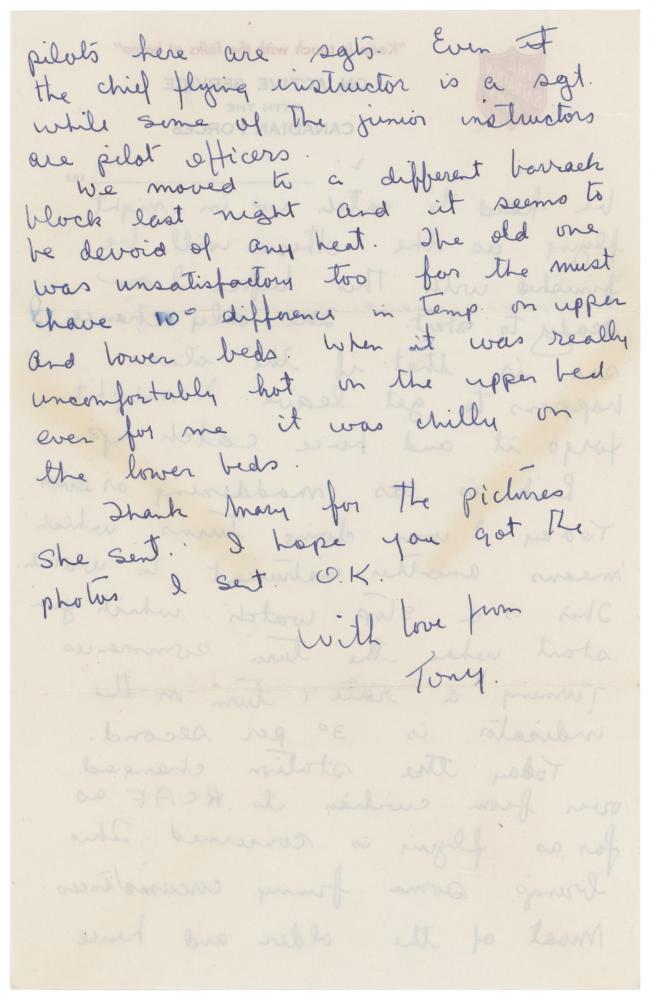 pilots here are sgts. Even
the chief flying instructor is a sgt.
while some of the junior instructors
are pilot officers.
We moved to a different barrack
block last night and it seems to
be devoid of any heat. The old one
was unsatisfactory too for the must
have 10° difference in temp on upper
and lower beds. When it was really
uncomfortably hot on the upper bed
even for me it was chilly on
the lower beds.
Thank Mary for the pictures
she sent. I hope you got the
photos I sent O.K.
With love from
Tony.